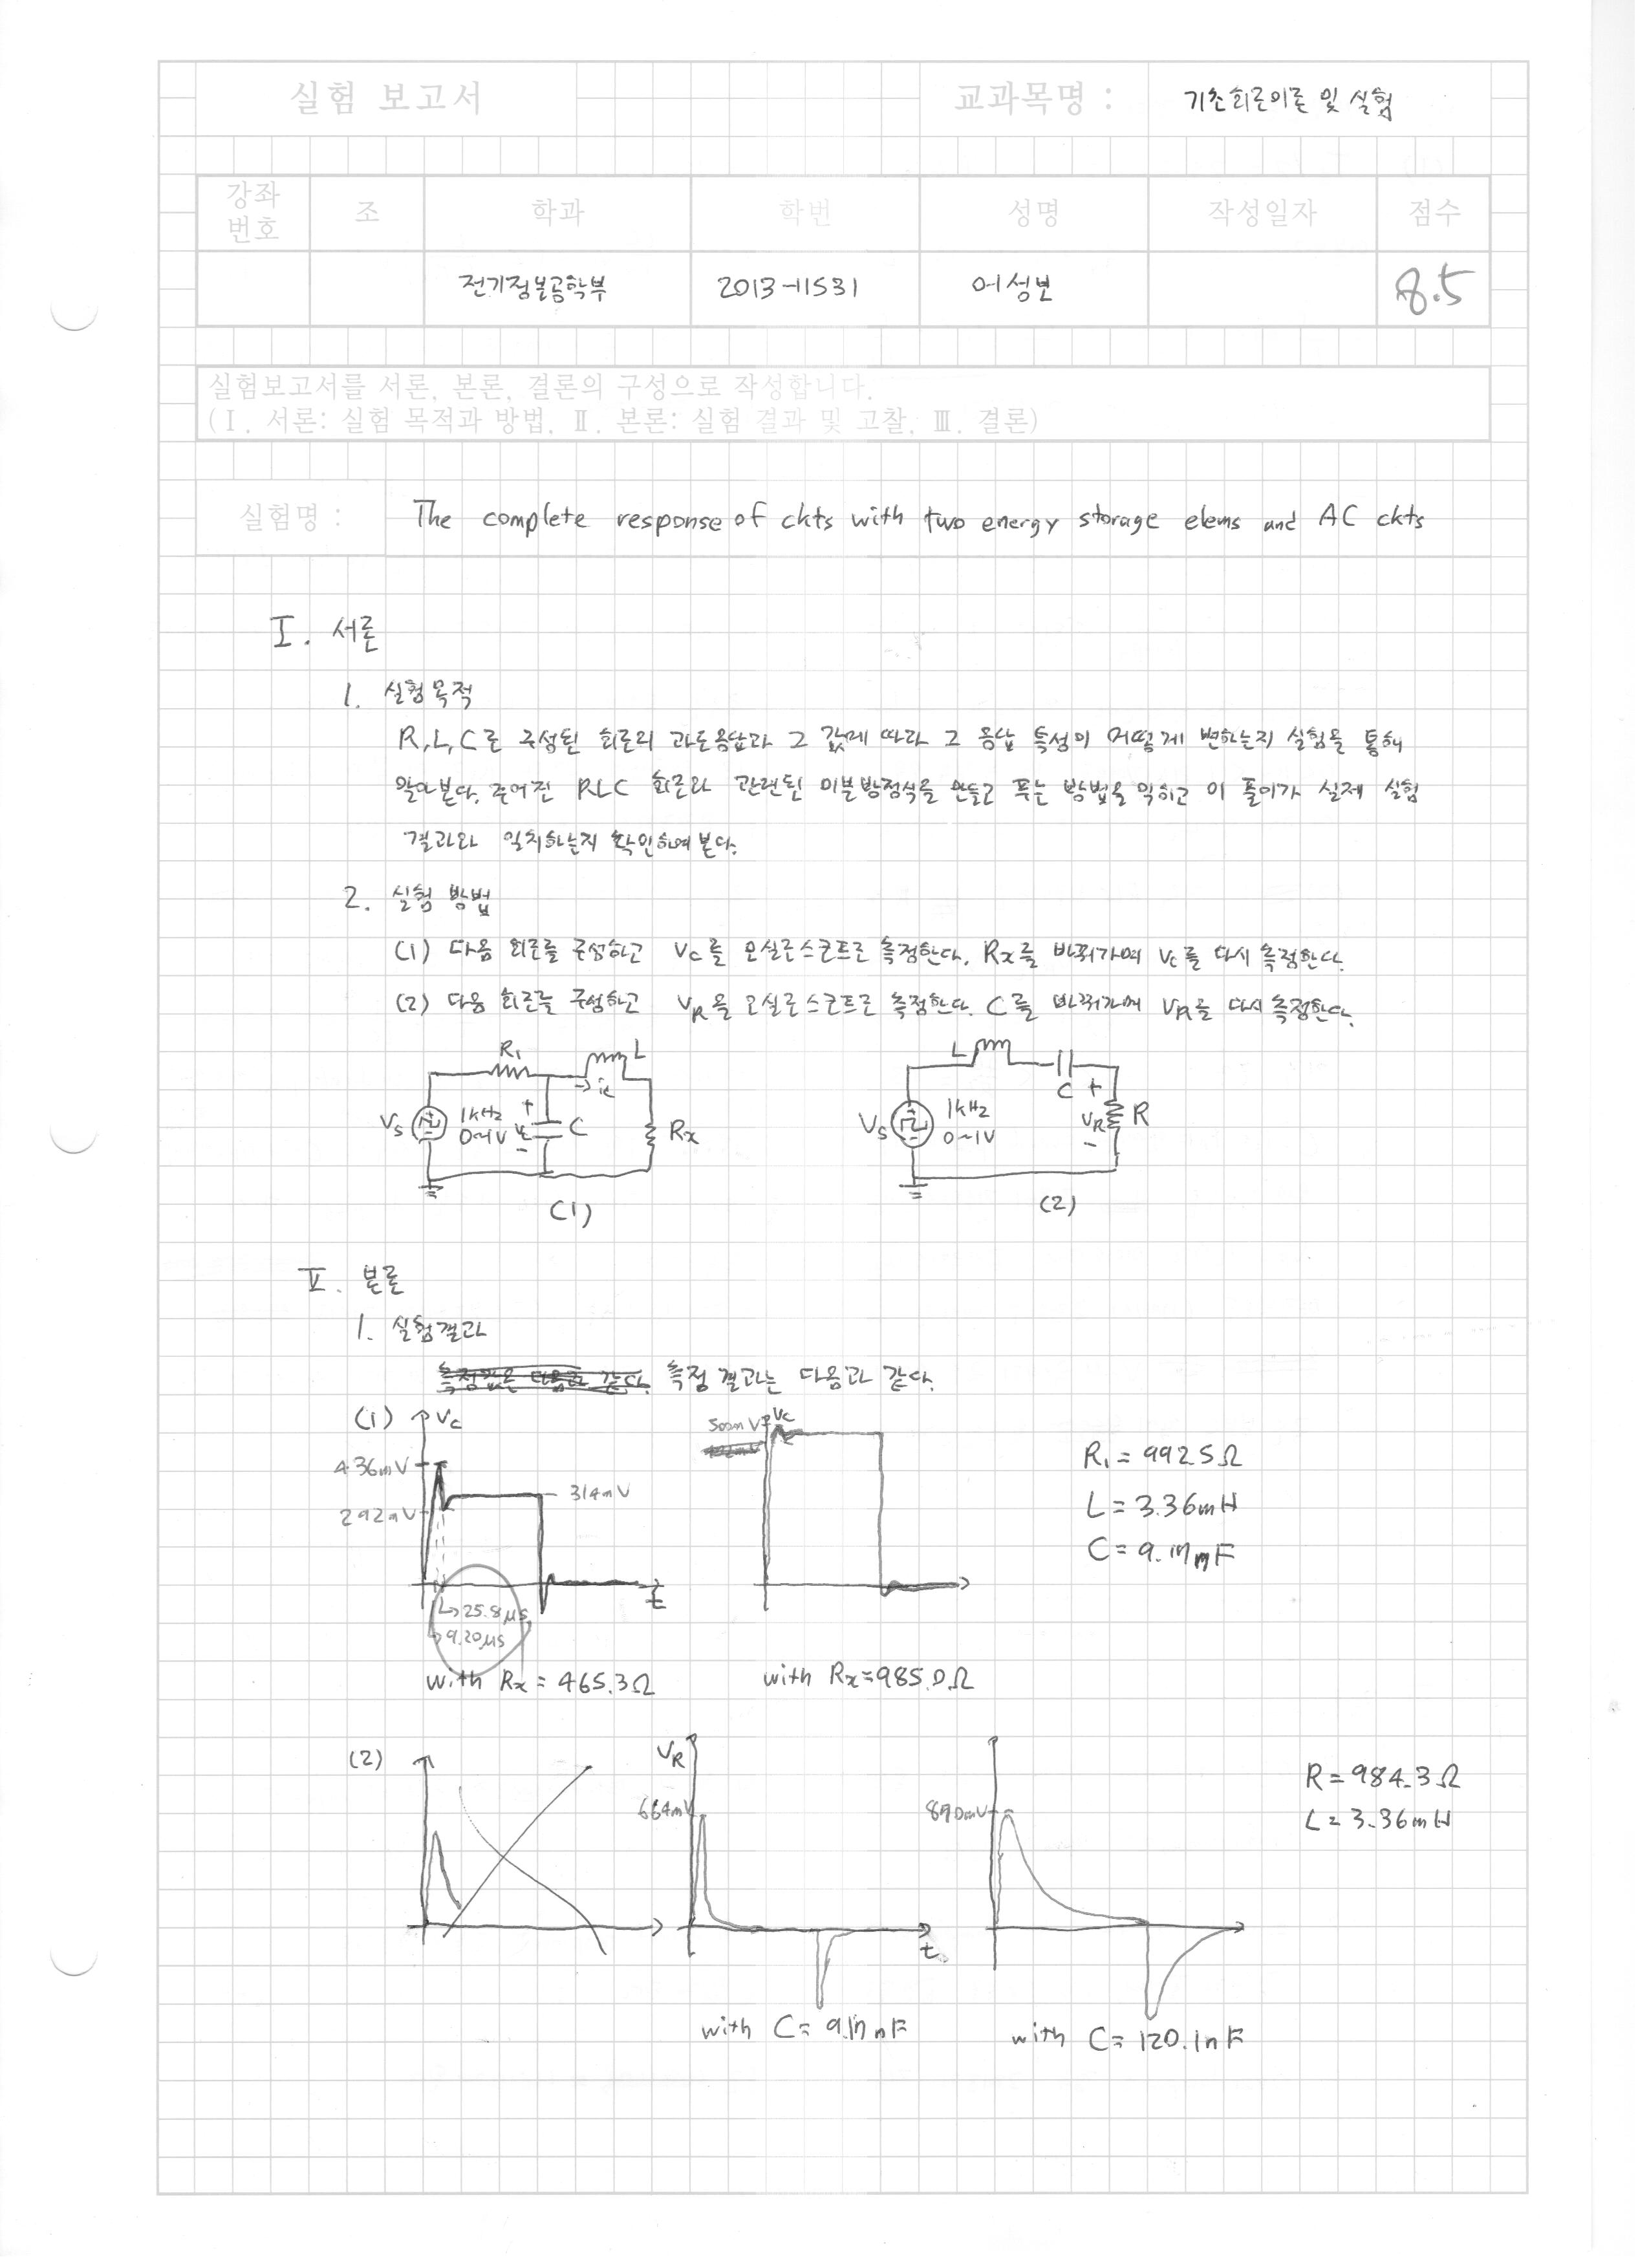 실험 보고서
교과목명 : 기초회로이론 및 실험
강좌번호 조 학과 학번 성명 작성일자 점수
전기정보공학부 2013-11531 어성보 8.5
실험보고서를 서론, 본론, 결론의 구성으로 작성합니다.
(Ⅰ. 서론: 실험 목적과 방법, Ⅱ. 본론: 실험 결과 및 고찰, Ⅲ. 결론)
실험명 : The complete response of ckts with two energy storage elems and AC ckts
I. 서론
1. 실험목적
R, L, C로 구성된 회로의 과도응답과 그 값에 따라 그 응답 특성이 어떻게 변하는지 실험을 통해
알아본다. 주어진 RLC 회로와 관련된 미분방정식을 만들고 푸는 방법을 익히고 이 풀이가 실제 실험
결과와 일치하는지 확인하여 본다.
2. 실험 방법
(1) 다음 회로를 구성하고 Vc를 오실로스코프로 측정한다. Rx를 바꿔가며 Vc를 다시 측정한다.
(2) 다음 회로를 구성하고 VR을 오실로스코프로 측정한다. C를 바꿔가며 VR을 다시 측정한다.
R1 L iL
Vs 1kHz 0~1V + Vc - C Rx
(1)
L C
Vs 1kHz 0~1V + VR - R
(2)
II. 본론
1. 실험결과
측정 결과는 다음과 같다.
(1) Vc
436mV
292mV
314mV
t
25.8μs
9.20μs
with Rx = 465.3Ω
500mV Vc
with Rx=985.0Ω
R1 = 992.5Ω
L = 3.36mH
C = 9.17nF
(2)
VR
664mV
t
with C= 9.17nF
890mV
with C= 120.1nF
R=984.3Ω
L=3.36mH